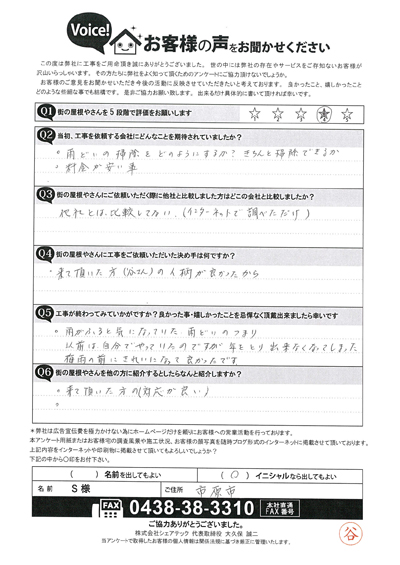 Voice!
お客様の声をお聞かせください
この度は弊社に工事をご用命頂き誠にありがとうございました。世の中には弊社の存在やサービスをご存知ないお客様が
沢山いらっしゃいます。その方たちに弊社をよく知って頂くためのアンケートにご協力頂けないでしょうか。
お客様のご意見をお聞かせいただき今後の活動に反映させていただきたいと考えております。良かったこと、嬉しかったこと
どのような些細な事でも結構です。是非ご協力お願い致します。出来るだけ具体的に書いて頂ければ幸いです。
Q1 街の屋根やさんを5段階で評価をお願いします
☆ ☆ ☆ ☆ ☆
Q2 当初、工事を依頼する会社にどんなことを期待されていましたか?
。雨どいの掃除をどのようにするか?きちんと掃除できるか
・料金が安い事
Q3 街の屋根やさんにご依頼いただく際に他社と比較しました方はどこの会社と比較しましたか?
他社とは比較してない。(インターネットで調べただけ)
Q4 街の屋根やさんに工事をご依頼いただいた決め手は何ですか?
・来て頂いた方(谷さん)の人柄が良かったから
Q5 工事が終わってみていかがですか?良かった事・嬉しかったことを忌憚なく頂戴出来ましたら幸いです
・雨がふると気になっていた雨どいのつまり
以前は自分でやっていたのですが年をとり出来なくなってしまった
梅雨の前にきれいになって良かったです
Q6 街の屋根やさんを他の方に紹介するとしたらなんと紹介しますか?
・来て頂いた方の(対応が良い)
。
*弊社は広告宣伝費を極力かけない為にホームページだけを頼りにお客様への営業活動を行っております。
本アンケート用紙またはお客様宅の調査風景や施工状況、お客様の顔写真を随時ブログ形式のインターネットに掲載させて頂いております。
上記内容をインターネットや印刷物に掲載させて頂いてもよろしいでしょうか?
下記の中から〇印をお付下さい。
( )名前を出してもよい
(〇)イニシャルなら出してもよい
名前 S様
ご住所 市原市
FAX 0438-38-3310 本社直通 FAX番号
ご協力ありがとうございました。
株式会社シェアテック 代表取締役 大久保 誠二
当アンケートで取得したお客様の個人情報は関係法規に基づき厳正に管理いたします。
谷